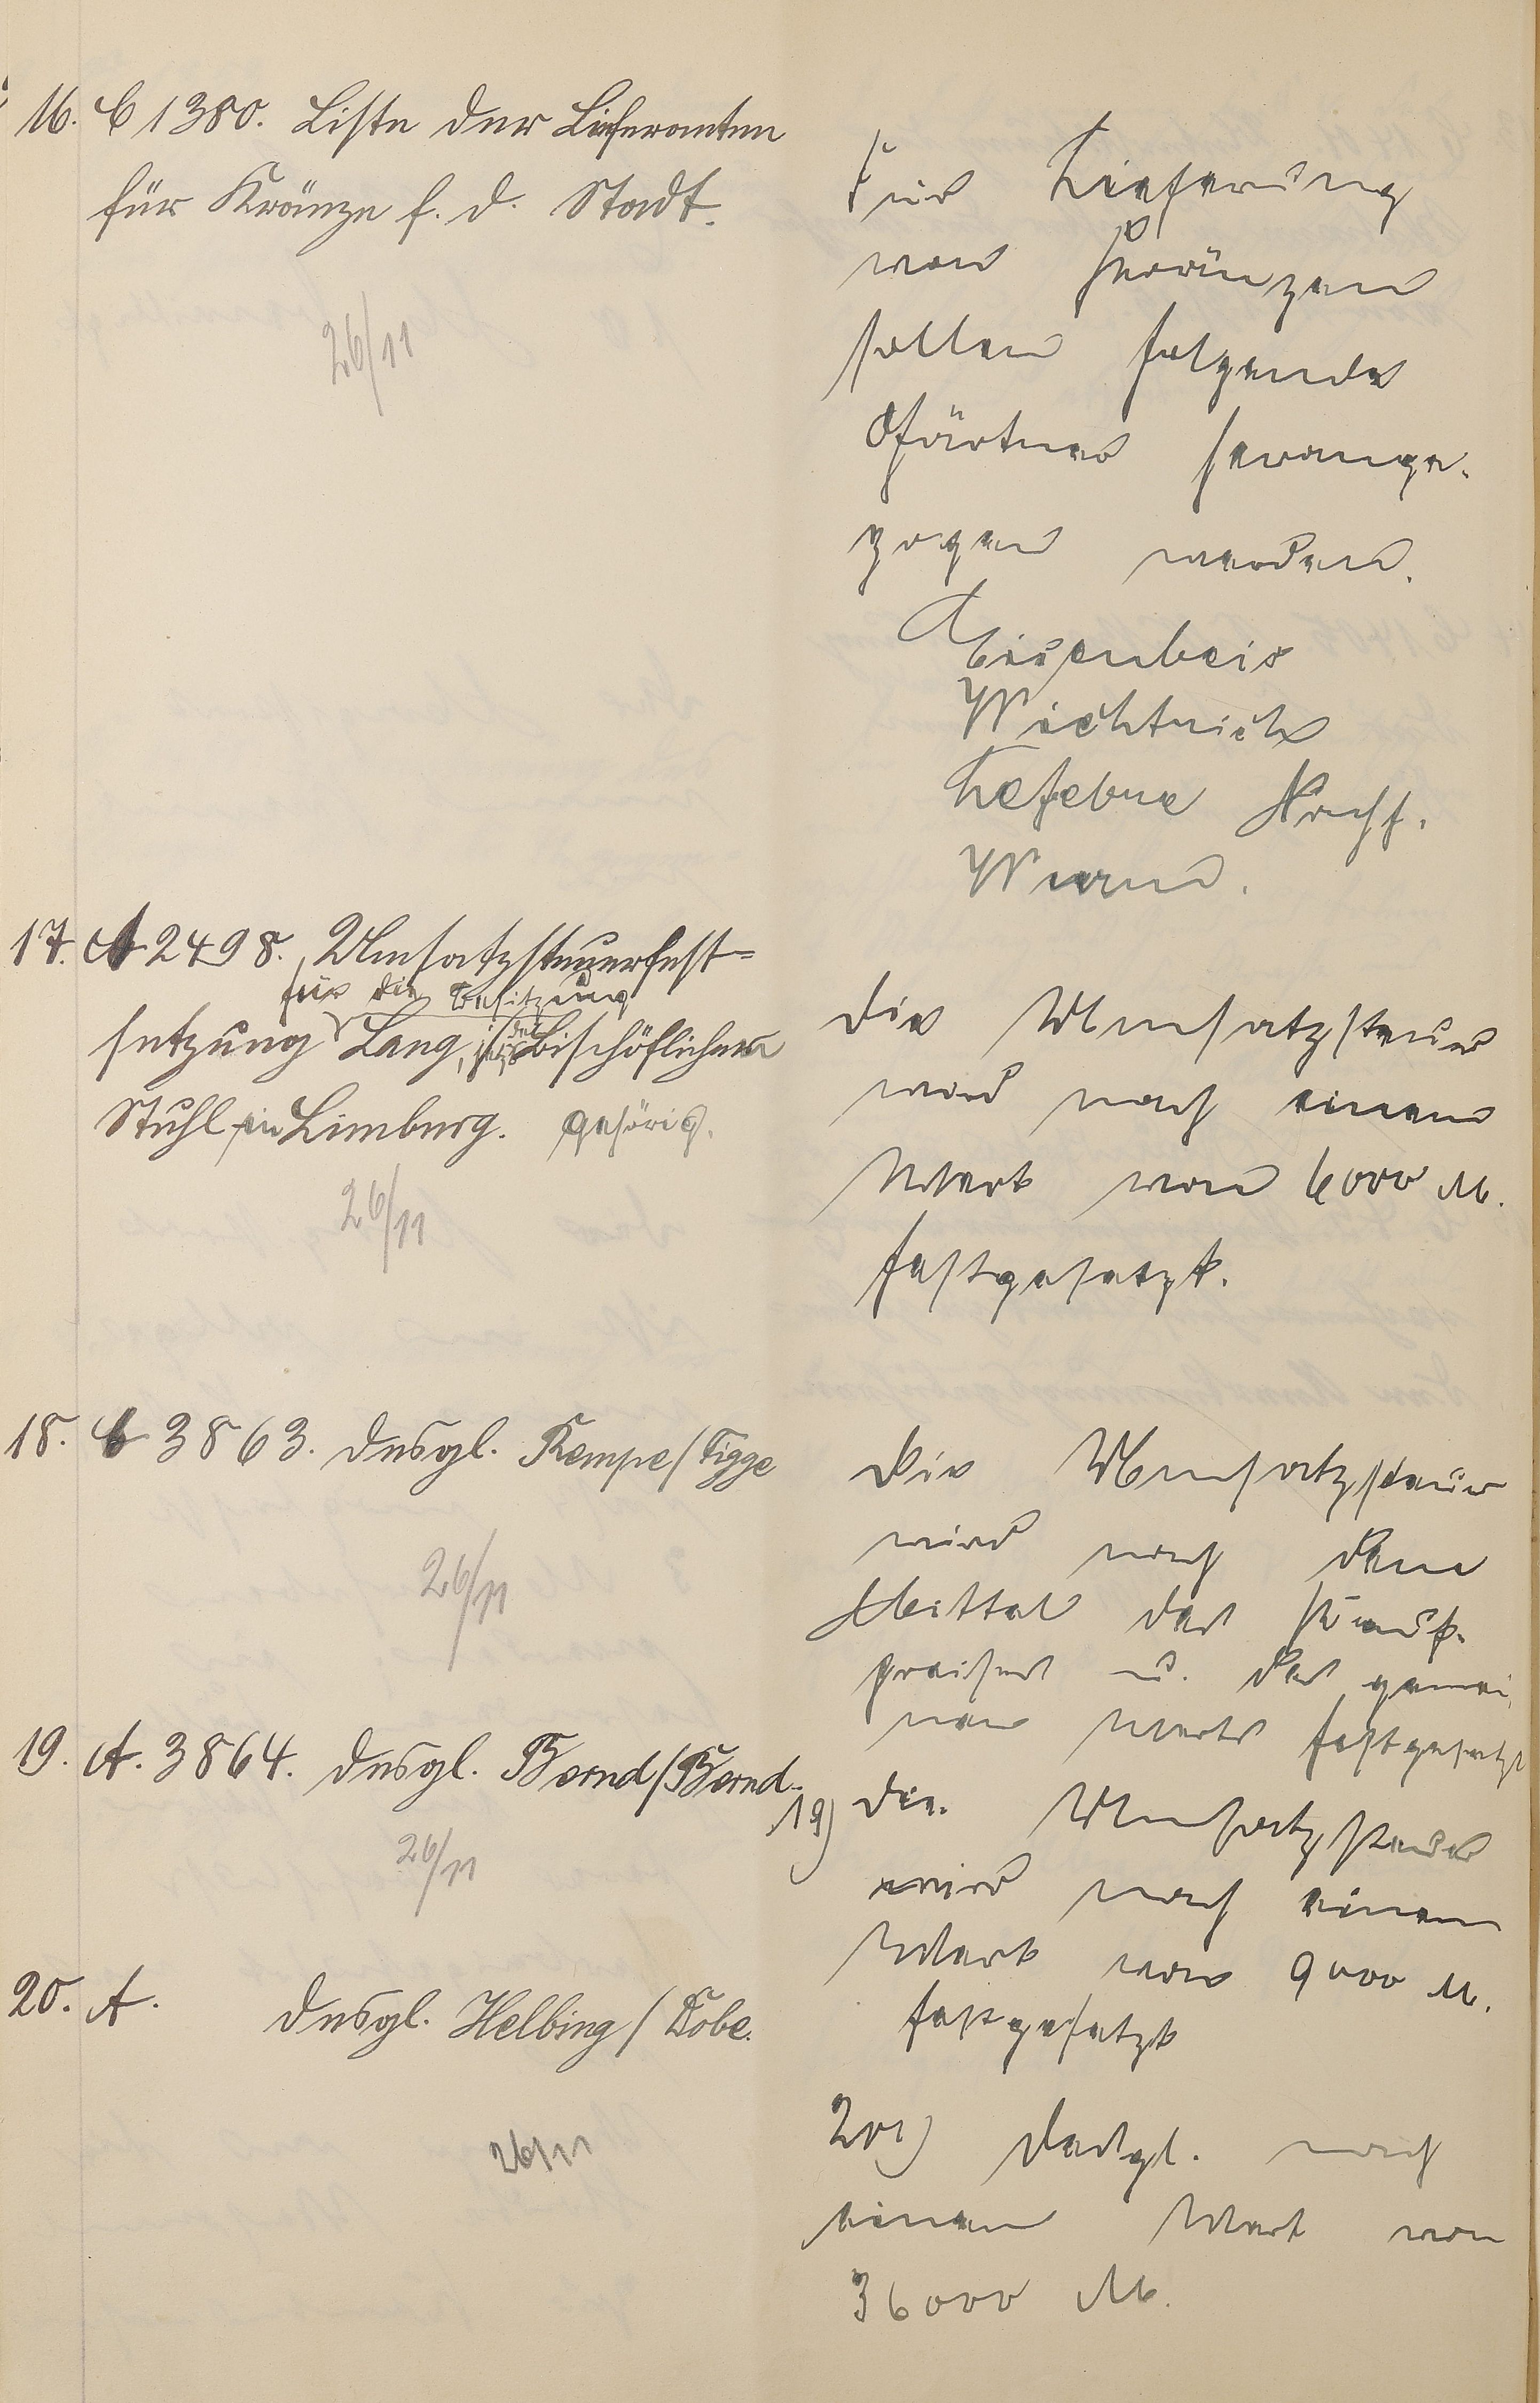 16. C 1380. Liste der Lieferanten
für Kränze f. d. Stadt.
26/11
Für Lieferung
von Kränzen
sollen folgende
Gärtner herange-
zogen werden.
Eisenbeis
Wichtrich
Lefebvre Nachf.
Wurm.
17. A 2498. Umsatzsteuerfest=
für die Besitzung
setzung Lang, jetzt dem Bischöflichen
Stuhl in Limburg. gehörig.
26/11
Die Umsatzsteuer
wird nach einem
Wert von 6000 M.
festgesetzt.
18. C 3863. Desgl. Kempe/Tigge
26/11
Die Umsatzsteuer
wird nach dem
Mittel des Kauf-
preises u. des gemei-
nen Werts festgesetzt
19. A. 3864. Desgl. Bernd/Bernd.
26/11
19) Die Umsatzsteuer
wird nach einem
Wert von 9000 M.
festgesetzt
20. A. Desgl. Helbing / Kobe.
26/11
20) Desgl. nach
einem Wert von
36000 M.